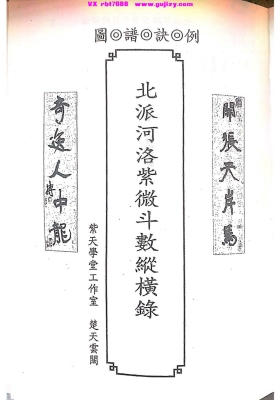 VX rbf7088 www.gujizy.com
圖◎譜◎訣◎例
開張天岸馬
北派河洛紫微斗數縱橫錄
紫天學堂工作室 楚天雲闊
奇逸人中龍